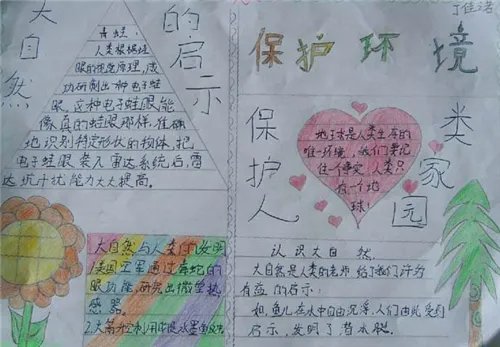 丁佳诺
大自然的启示
青蛙:
人类根据蛙
眼的视觉原理,成
功研制出一种电子蛙
眼。这种电子蛙眼能
像真的蛙眼那样,准确
地识别特定形状的物体。把
电子蛙眼装入雷达系统后,雷
达抗干扰能力大大提高。
大自然与人类的发明
1.美国空军通过毒蛇的
眼功能,研究出微型热
感器。
保护环境
保护人类家园
地球是人类生存的
唯一环境,我们要记
住一个事实,人类只
有一个地
球!
认识大自然
大自然是人类的老师,给了我们许为
有益的启示:
如,鱼儿在水中自由沉浮,人们由此受到
启示,发明了潜水艇。